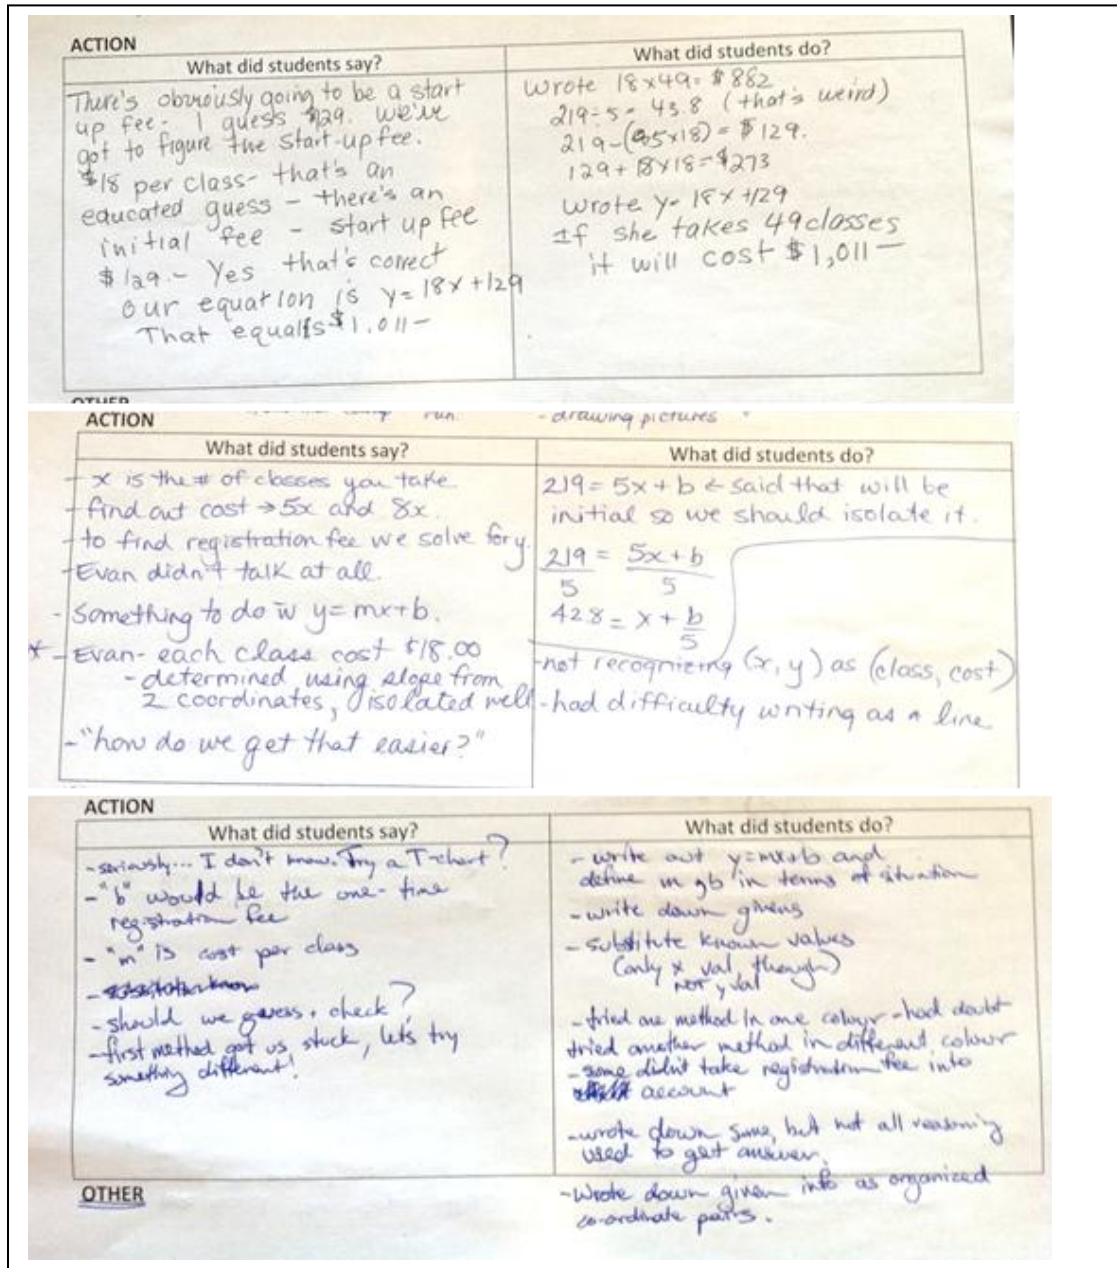 ACTION
What did students say?
There's obviously going to be a start
up fee - I guess $129. We've
got to figure the start-up fee.
$18 per class - that's an
educated guess - there's an
initial fee - start up fee
$129.- Yes that's correct
our equation is y= 18x +129
That equalls $1.011-
What did students do?
Wrote 18x49= $882
219÷5= 43.8 (that's weird)
219-(5x18) = $129.
129+ 18x18=$273
Wrote y= 18x+129
If she takes 49 classes
it will cost $1,011-
OTHER
run.
- drawing pictures
ACTION
What did students say?
- x is the # of classes you take
- find out cost → 5x and 8x.
- to find registration fee we solve for y.
- Evan didn't talk at all.
- Something to do w y=mx+b.
* - Evan- each class cost $18.00
- determined using slope from
2 coordinates, isolated well
- "how do we get that easier?"
What did students do?
219= 5x+b ← said that will be
initial so we should isolate it.
219 = 5x+b
5 5
428 = x + b
5
-not recognizing (x,y) as (class, cost)
-had difficulty writing as a line
ACTION
What did students say?
- seriously... I don't know. Try a T-chart?
- "b" would be the one-time
registration fee
- "m" is cost per class
- should we guess + check?
- first method got us stuck, lets try
something different!
What did students do?
- write out y=mx+b and
define m b in terms of situation
- write down givens
- substitute known values
(only x val, though)
NOT y val
- tried one method in one colour - had doubt
tried another method in different colour
- some didn't take registration fee into
account
- wrote down some, but not all reasoning
used to get answer.
- Wrote down given info as organized
co-ordinate pairs.
OTHER